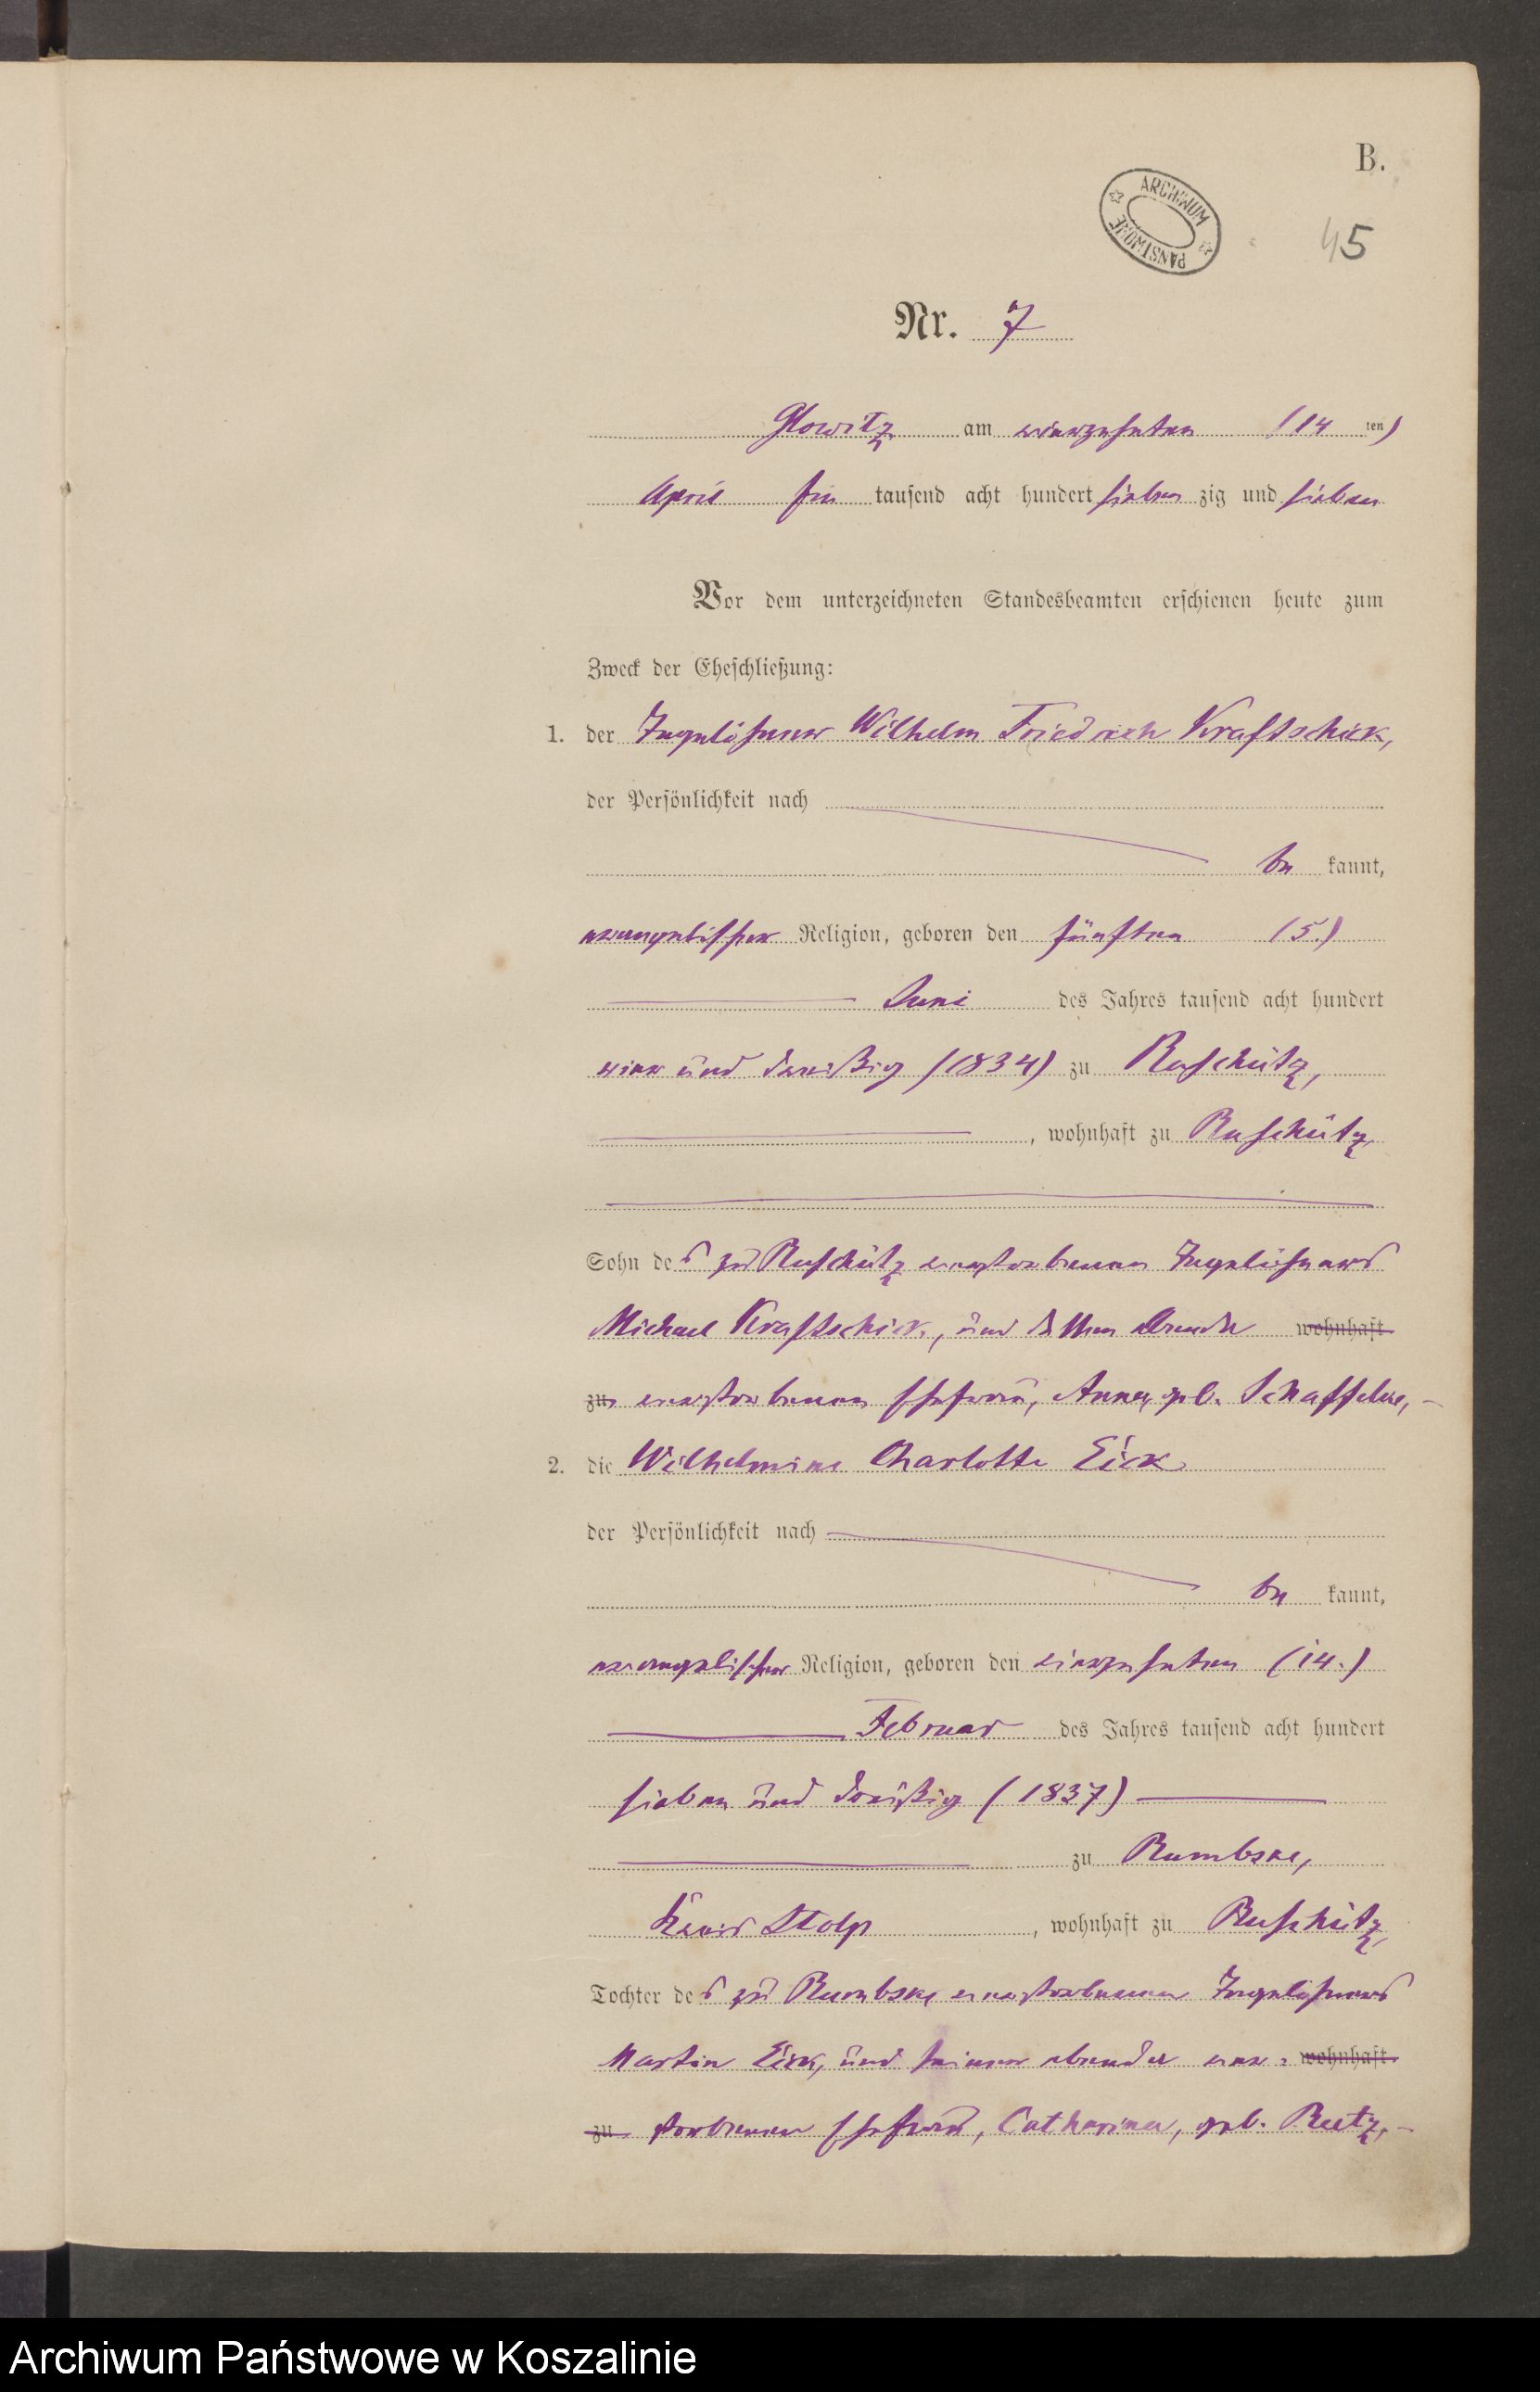 B.
ARCHIWUM PAŃSTWOWE
45
Nr. 7
Glowitz am vierzehnten (14 ten)
April Ein tausend acht hundert sieben zig und sieben
Vor dem unterzeichneten Standesbeamten erschienen heute zum
Zweck der Eheschließung:
1. der Tagelöhner Wilhelm Friedrich Kraftschick,
der Persönlichkeit nach
be kannt,
evangelischer Religion, geboren den fünften (5.)
Juni des Jahres tausend acht hundert
vier und dreißig (1834) zu Ruschütz,
, wohnhaft zu Ruschütz,
Sohn des zu Ruschütz verstorbenen Tagelöhners
Michael Kraftschick, und dessen ebenda wohnhaft
zu verstorbenen Ehefrau, Anna, geb. Schaffelke,
2. die Wilhelmine Charlotte Eick
der Persönlichkeit nach
be kannt,
evangelischer Religion, geboren den vierzehnten (14.)
Februar des Jahres tausend acht hundert
sieben und dreißig (1837)
zu Rumbske,
Kreis Stolp, wohnhaft zu Ruschütz,
Tochter des zu Rumbske verstorbenen Tagelöhners
Martin Eick, und seiner ebenda ver= wohnhaft
zu storbenen Ehefrau, Catharina, geb. Reetz,
Archiwum Państwowe w Koszalinie